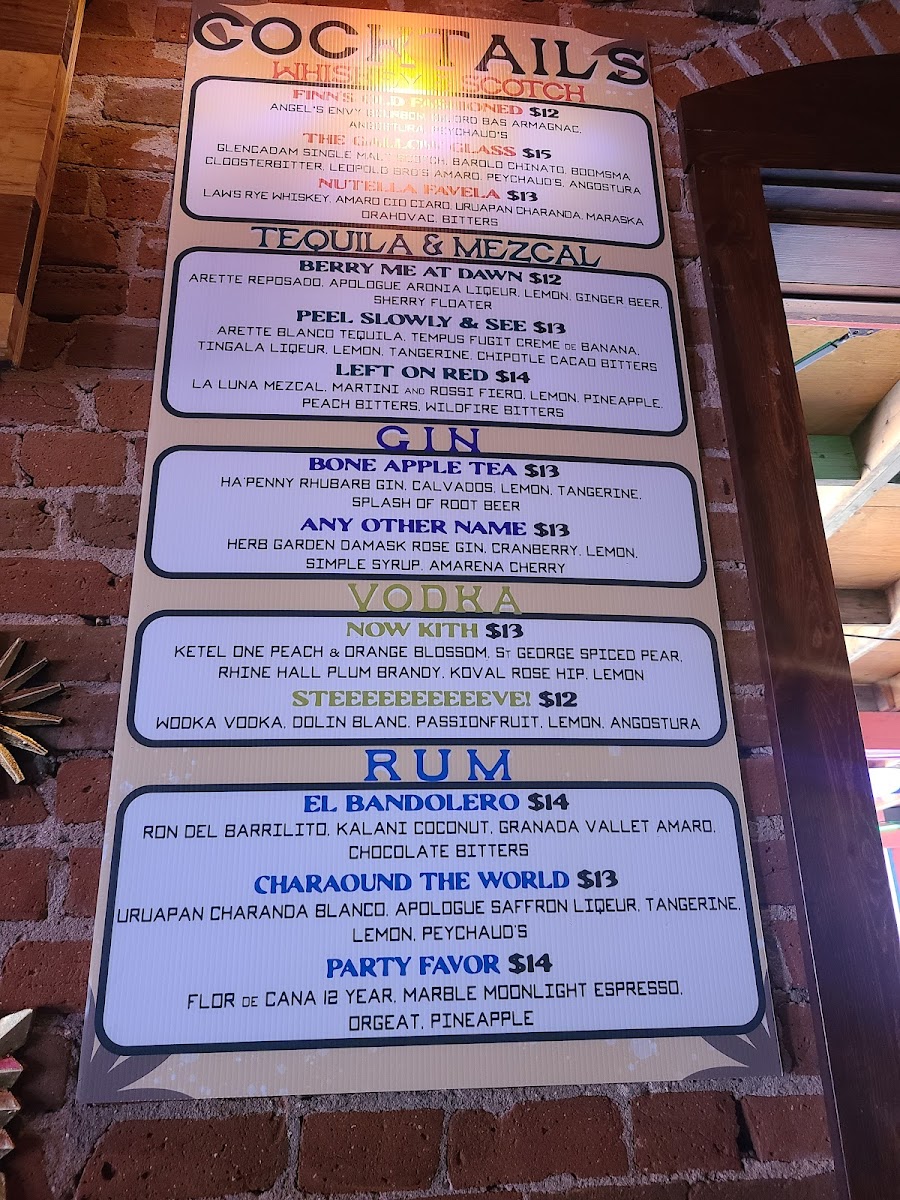 COCKTAILS
WHISKEY & SCOTCH
FINN'S OLD FASHIONED $12
ANGEL'S ENVY BOURBON, BAS ARMAGNAC,
ANGOSTURA, PEYCHAUD'S
THE GALLOWGLASS $15
GLENCADAM SINGLE MALT SCOTCH, BAROLO CHINATO, BOOMSMA
CLOOSTERBITTER, LEOPOLD BRO'S AMARO, PEYCHAUD'S, ANGOSTURA
NUTELLA FAVELA $13
LAWS RYE WHISKEY, AMARO CIO CIARO, URUAPAN CHARANDA, MARASKA
ORAHOVAC, BITTERS
TEQUILA & MEZCAL
BERRY ME AT DAWN $12
ARETTE REPOSADO, APOLOGUE ARONIA LIQEUR, LEMON, GINGER BEER,
SHERRY FLOATER
PEEL SLOWLY & SEE $13
ARETTE BLANCO TEQUILA, TEMPUS FUGIT CREME DE BANANA,
TINGALA LIQEUR, LEMON, TANGERINE, CHIPOTLE CACAO BITTERS
LEFT ON RED $14
LA LUNA MEZCAL, MARTINI AND ROSSI FIERO, LEMON, PINEAPPLE,
PEACH BITTERS, WILDFIRE BITTERS
GIN
BONE APPLE TEA $13
HA'PENNY RHUBARB GIN, CALVADOS, LEMON, TANGERINE,
SPLASH OF ROOT BEER
ANY OTHER NAME $13
HERB GARDEN DAMASK ROSE GIN, CRANBERRY, LEMON,
SIMPLE SYRUP, AMARENA CHERRY
VODKA
NOW KITH $13
KETEL ONE PEACH & ORANGE BLOSSOM, ST GEORGE SPICED PEAR,
RHINE HALL PLUM BRANDY, KOVAL ROSE HIP, LEMON
STEEEEEEEEEEVE! $12
WODKA VODKA, DOLIN BLANC, PASSIONFRUIT, LEMON, ANGOSTURA
RUM
EL BANDOLERO $14
RON DEL BARRILITO, KALANI COCONUT, GRANADA VALLET AMARO,
CHOCOLATE BITTERS
CHARAOUND THE WORLD $13
URUAPAN CHARANDA BLANCO, APOLOGUE SAFFRON LIQEUR, TANGERINE,
LEMON, PEYCHAUD'S
PARTY FAVOR $14
FLOR DE CANA 12 YEAR, MARBLE MOONLIGHT ESPRESSO,
ORGEAT, PINEAPPLE